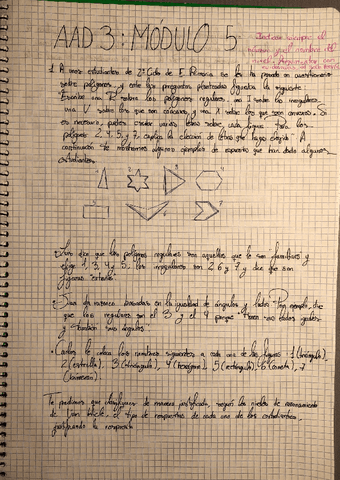 AAD 3: MÓDULO 5
Indicar siempre el
número y el nombre del
nivel. Argumentar con
1. A unos estudiantes de 2º Ciclo de E. Primaria se les ha pasado un cuestionario
sobre polígonos, y entre las preguntas planteadas figuraba la siguiente:
Escribe una R sobre los polígonos regulares, una I sobre los irregulares,
una V sobre los que son cóncavos, y una X sobre los que son convexos. Si
es necesario, puedes escribir varias letras sobre cada figura. Para los
polígonos 2, 4, 5, y 7, explica la elección de letras que hayas elegido. A
continuación te mostramos algunos ejemplos de respuesta que han dado algunos
estudiantes.
1
2
3
4
5
6
7
dice que los polígonos regulares son aquellos que le son familiares y
elige 1, 3, 4 y 5, los irregulares son 2, 6 y 7 y dice que son
figuras extrañas.
da razones basadas en la igualdad de ángulos y lados. Por ejemplo, dice
que los regulares son el 3 y el 4 porque tienen sus lados iguales
y también sus ángulos.
• Carlos le coloca los nombres siguientes a cada una de las figuras: 1 (triángulo),
2 (estrella), 3 (triángulo), 4 (hexágono), 5 (rectángulo), 6 7
Te pedimos que identifiques de manera justificada, según los niveles de razonamiento
de Van Hiele, el tipo de respuestas de cada uno de los estudiantes,
justificando la respuesta.